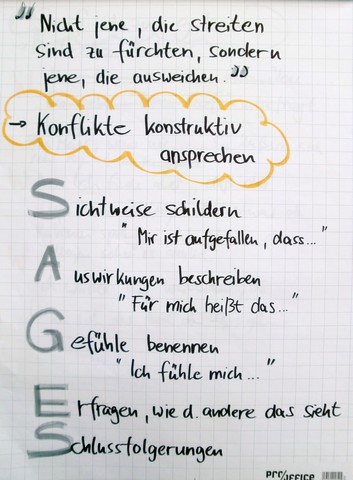 "Nicht jene, die streiten
sind zu fürchten, sondern
jene, die ausweichen."
→ Konflikte konstruktiv
ansprechen
Sichtweise schildern
"Mir ist aufgefallen, dass..."
Auswirkungen beschreiben
"Für mich heißt das..."
Gefühle benennen
"Ich fühle mich..."
Erfragen, wie d. andere das sieht
Schlussfolgerungen
PRO/OFFICE